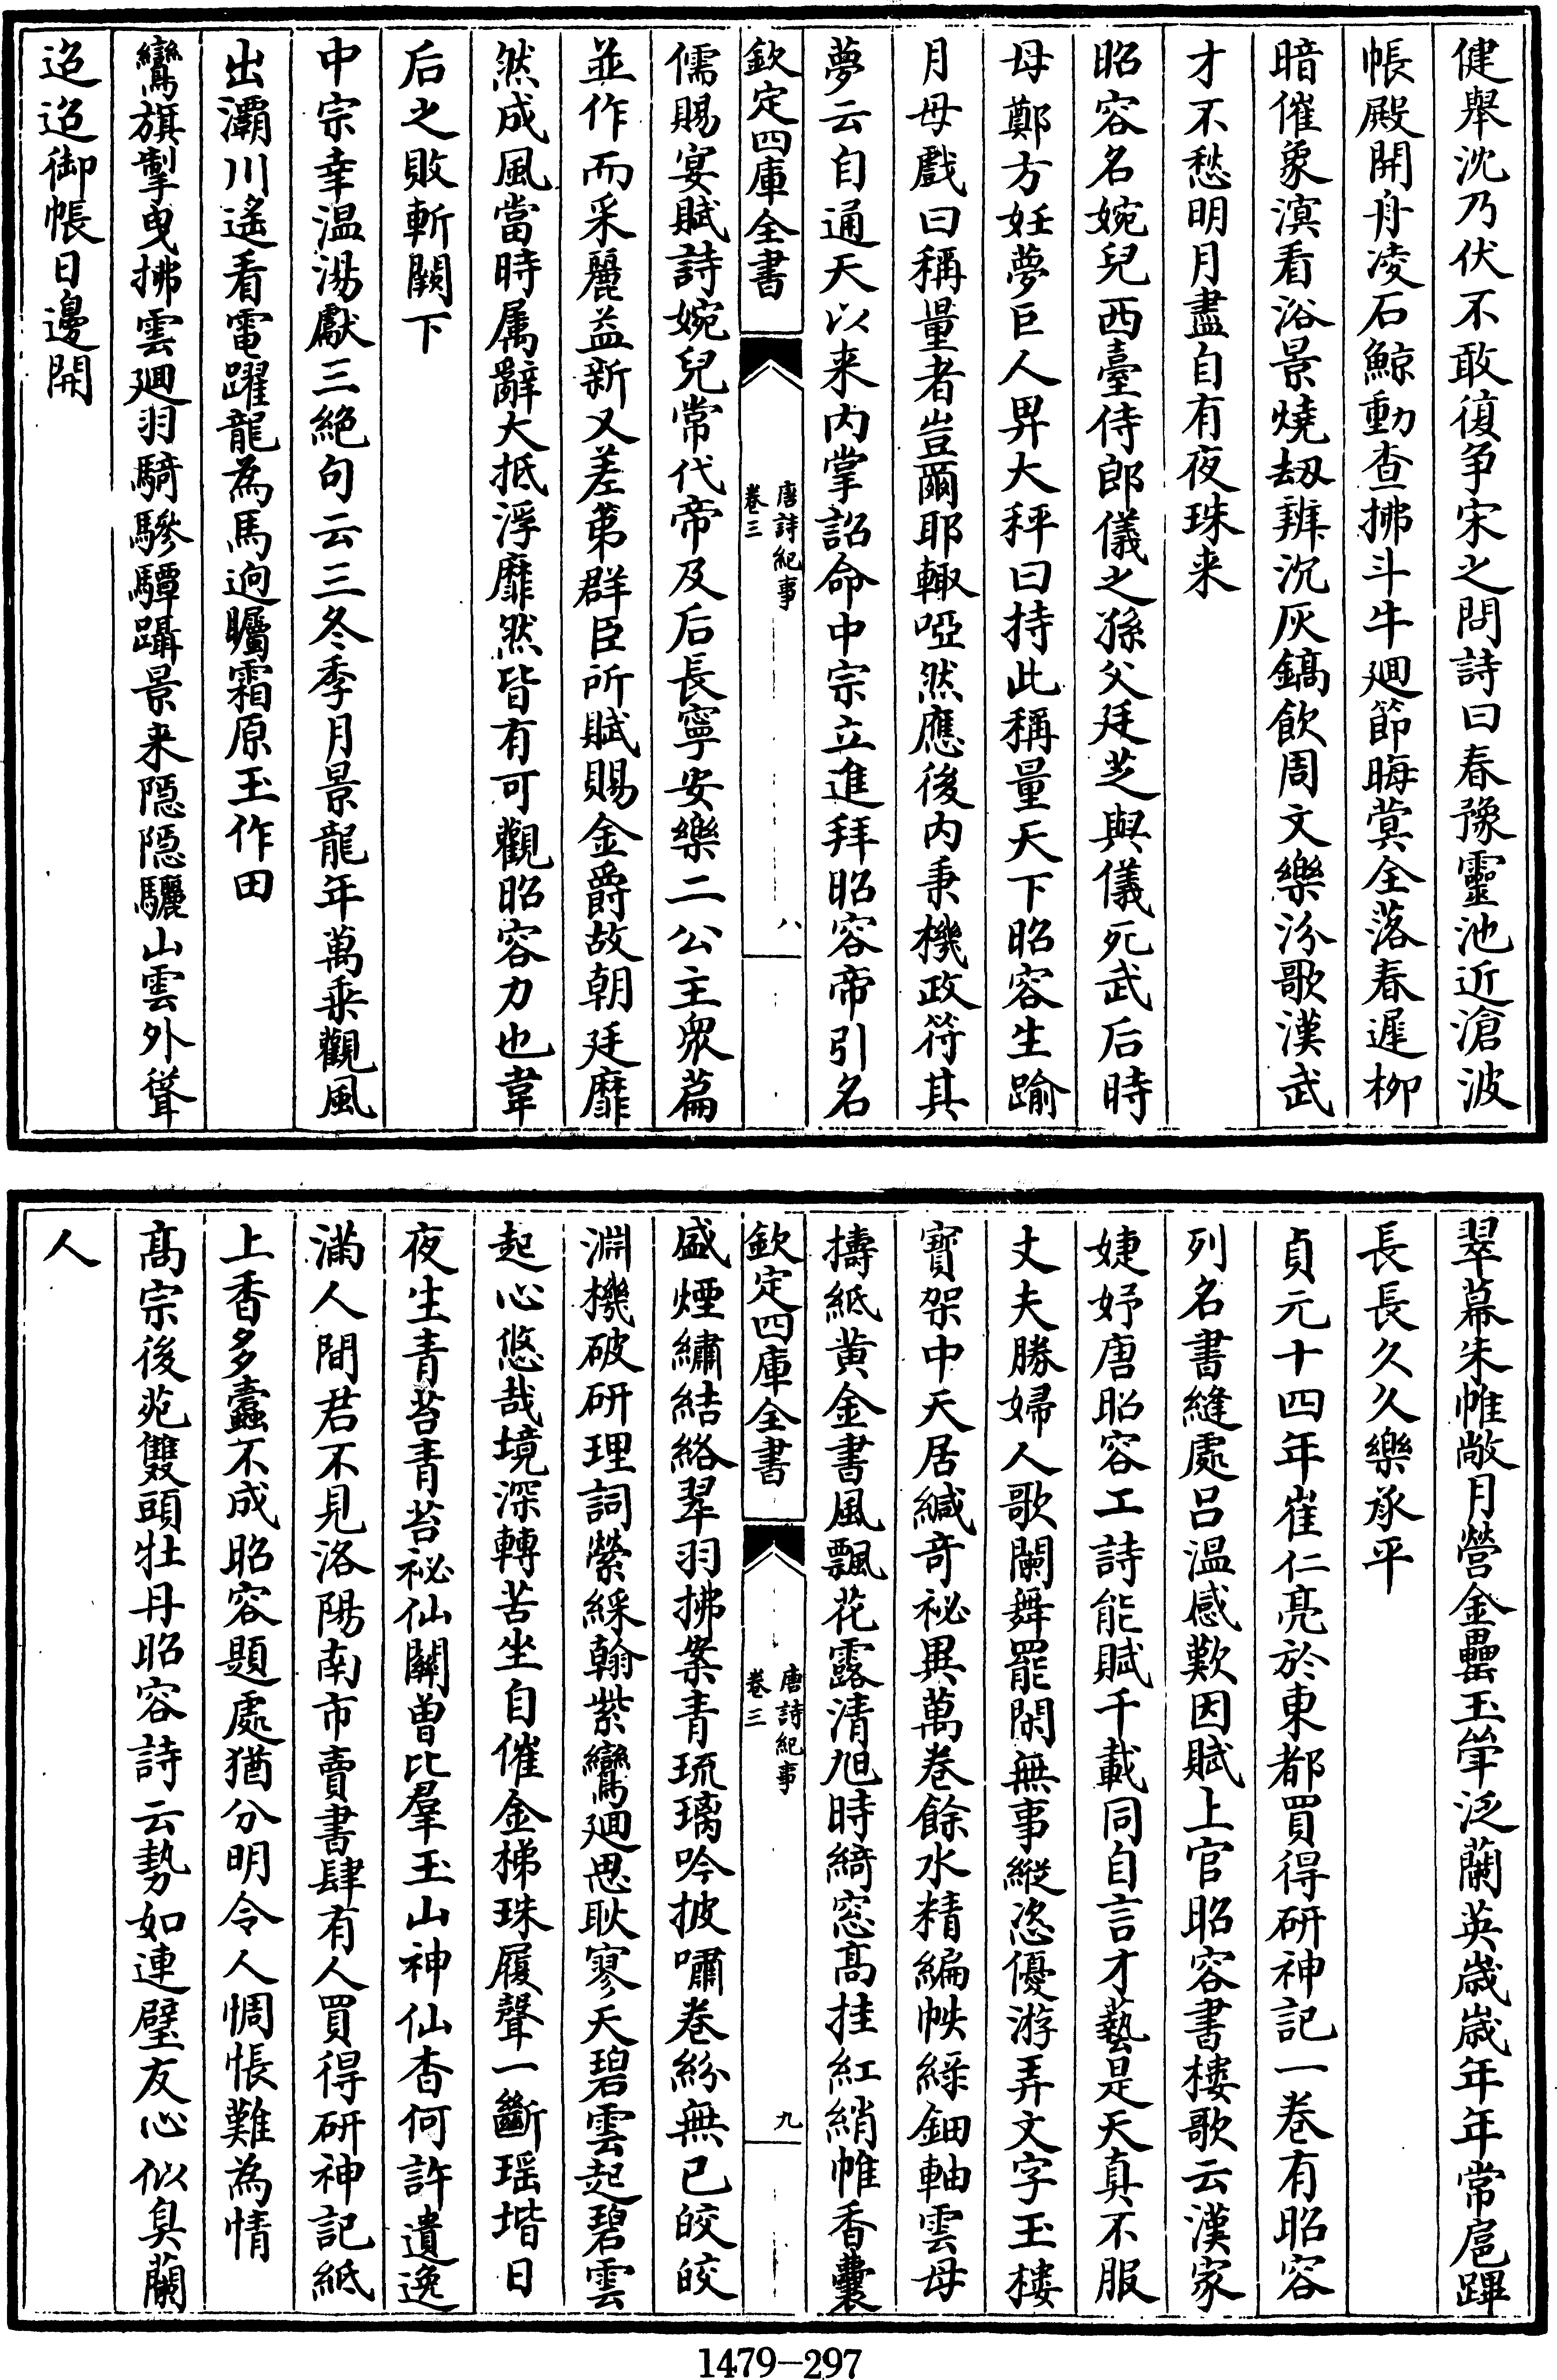 健舉沈乃伏不敢復争宋之問詩曰春豫靈池近滄波
帳殿開舟凌石鯨動查拂斗牛廻節晦蓂全落春遲柳
暗催象溟看浴景燒刼辨沉灰鎬飲周文樂汾歌漢武
才不愁明月盡自有夜珠来
昭容名婉兒西臺侍郎儀之孫父廷芝與儀死武后時
母鄭方妊夢巨人畀大秤曰持此稱量天下昭容生踰
月母戲曰稱量者豈爾耶輙啞然應後内秉機政符其
夢云自通天以来内掌詔命中宗立進拜昭容帝引名
欽定四庫全書
唐詩紀事
卷三
八
儒賜宴賦詩婉兒常代帝及后長寧安樂二公主衆篇
並作而采麗益新又差第群臣所賦賜金爵故朝廷靡
然成風當時属辭大抵浮靡然皆有可觀昭容力也韋
后之敗斬闕下
中宗幸温湯獻三絶句云三冬季月景龍年萬乘觀風
出灞川遙看電躍龍為馬逈矚霜原玉作田
鸞旗掣曳拂雲廻羽騎驂驔躡景来隠隠驪山雲外聳
迢迢御帳日邊開
翠幕朱帷敞月營金罍玉斝泛蘭英歲歲年年常扈蹕
長長久久樂承平
貞元十四年崔仁亮於東都買得研神記一卷有昭容
列名書縫處吕温感歎因賦上官昭容書樓歌云漢家
婕妤唐昭容工詩能賦千載同自言才藝是天真不服
丈夫勝婦人歌闌舞罷閑無事縱恣優游弄文字玉樓
寶架中天居緘奇祕異萬卷餘水精編帙緑鈿軸雲母
擣紙黄金書風飄花露清旭時綺窓髙挂紅綃帷香囊
欽定四庫全書
唐詩紀事
卷三
九
盛煙繡結絡翠羽拂案青琉璃吟披嘯卷紛無已皎皎
淵機破研理詞縈綵翰紫鸞廻思耿寥天碧雲起碧雲
起心悠哉境深轉苦坐自催金梯珠履聲一斷瑶堦日
夜生青苔青苔祕仙關曾比羣玉山神仙杳何許遺逸
滿人間君不見洛陽南市賣書肆有人買得研神記紙
上香多蠹不成昭容題處猶分明令人惆悵難為情
髙宗後苑雙頭牡丹昭容詩云勢如連璧友心似臭蘭
人
1479—297